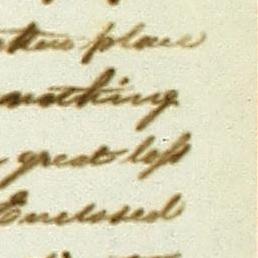 place
nothing
great loss
Enclosed